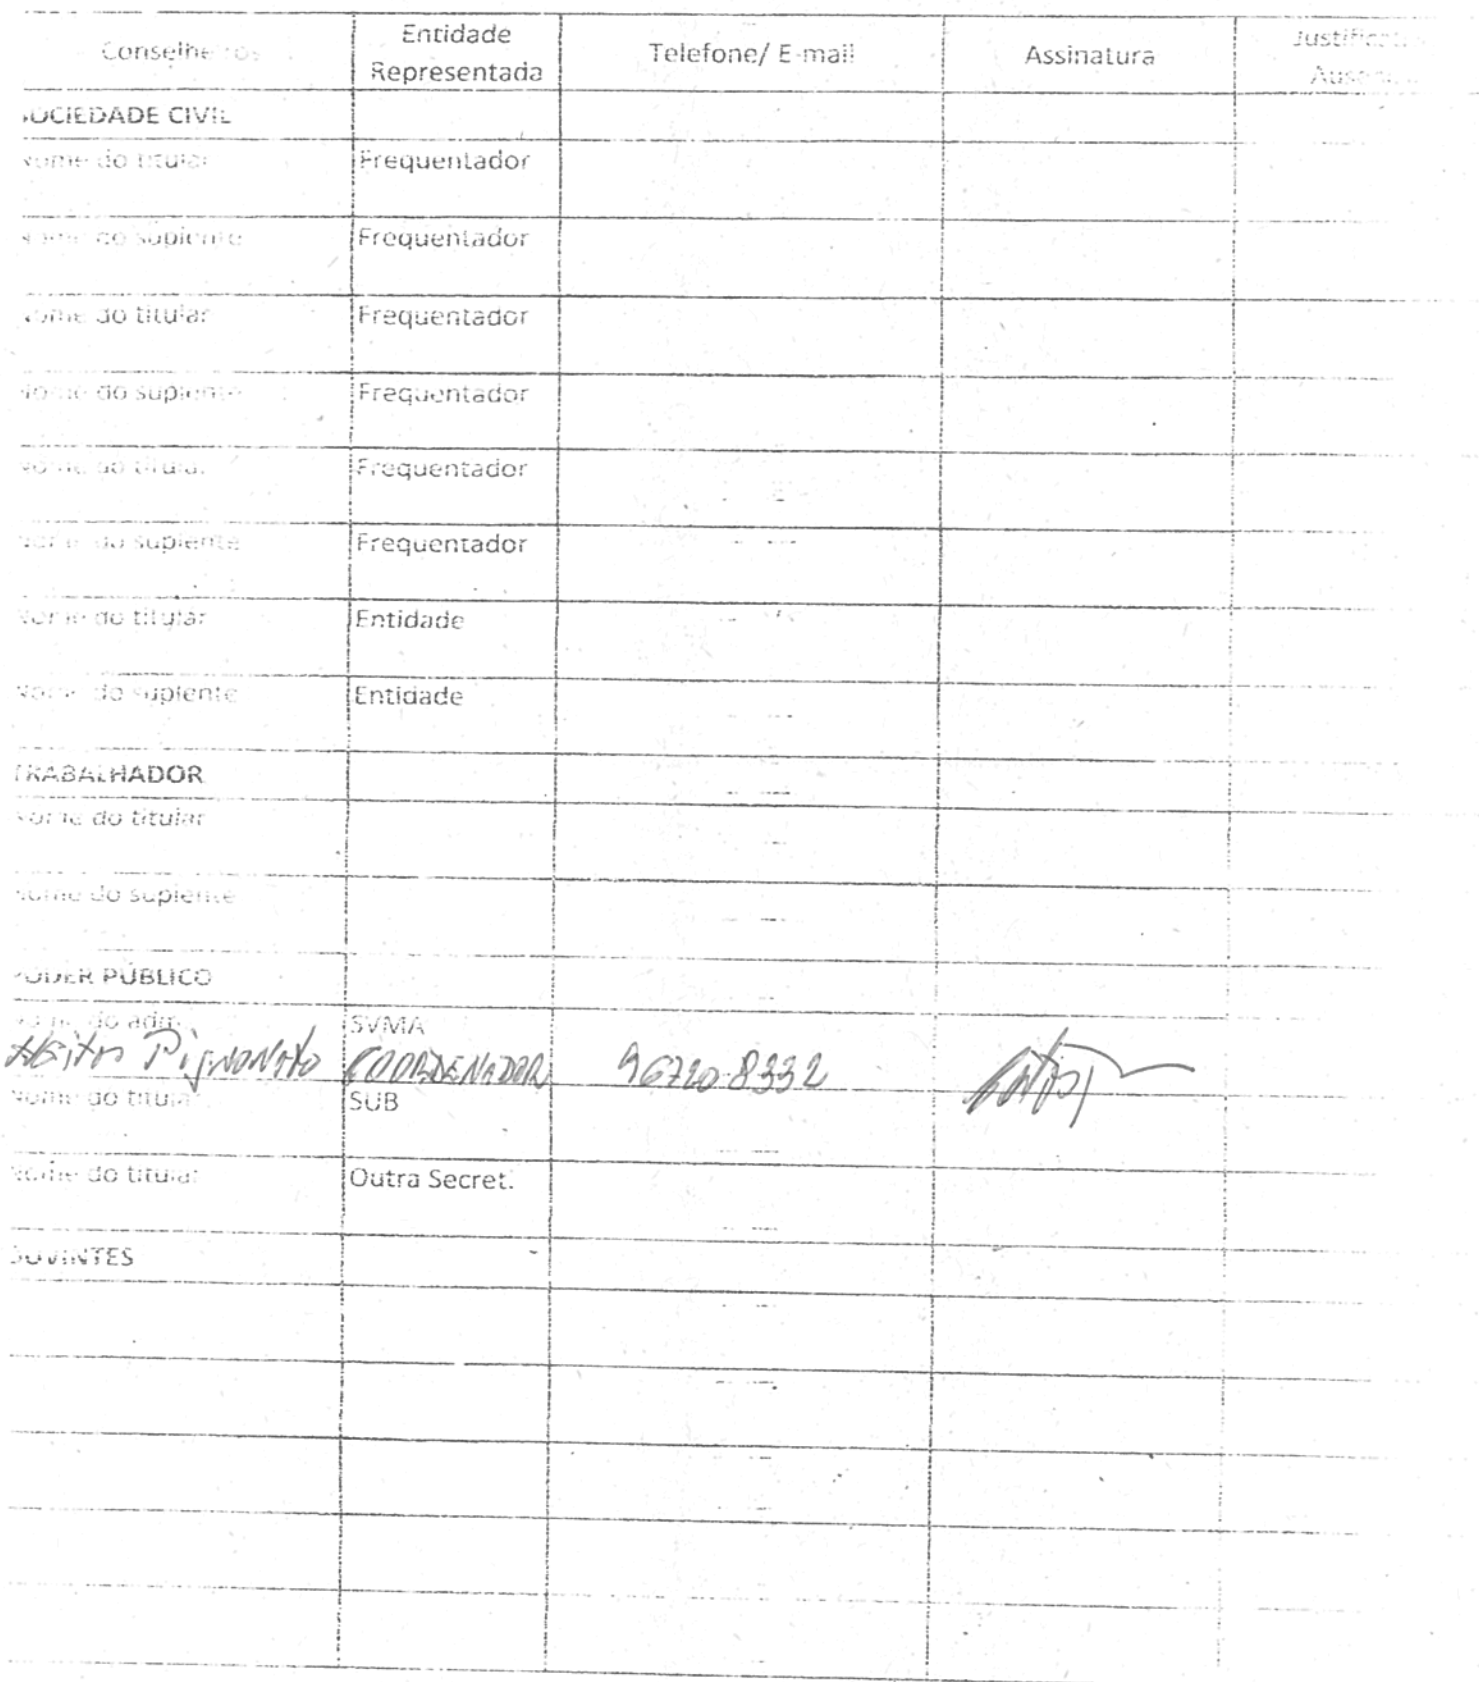 Conselheiros
Entidade
Representada
Telefone/ E-mail
Assinatura
SOCIEDADE CIVIL
Nome do titular
Frequentador
Nome do suplente
Frequentador
Nome do titular
Frequentador
Nome do suplente
Frequentador
Nome do titular
Frequentador
Nome do suplente
Frequentador
Nome do titular
Entidade
Nome do suplente
Entidade
TRABALHADOR
Nome do titular
Nome do suplente
PODER PÚBLICO
SVMA
COORDENADOR
96720-8332
Nome do titular
SUB
Nome do titular
Outra Secret.
OUVINTES